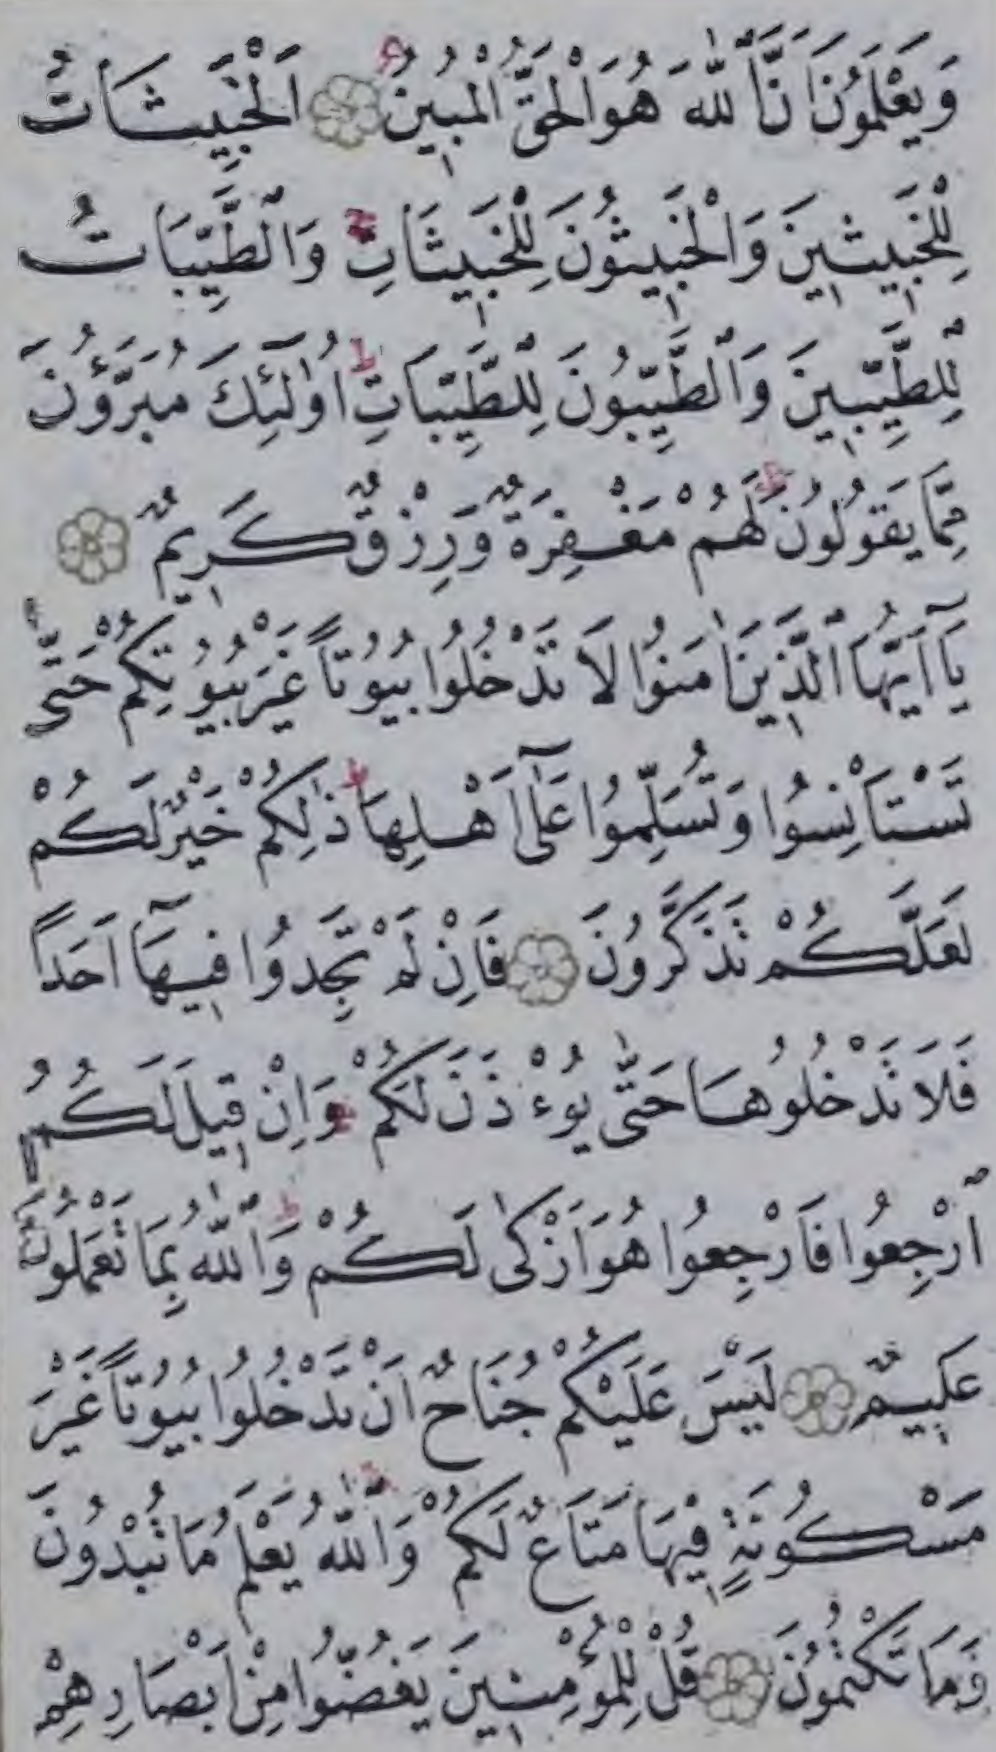 وَيَعْلَمُونَ اَنَّ اللّٰهَ هُوَ الْحَقُّ الْمُبِينُ اَلْخَبِيثَاتُ
لِلْخَبِيثِينَ وَالْخَبِيثُونَ لِلْخَبِيثَاتِ وَالطَّيِّبَاتُ
لِلطَّيِّبِينَ وَالطَّيِّبُونَ لِلطَّيِّبَاتِ اُولٰٓئِكَ مُبَرَّؤُنَ
مِمَّا يَقُولُونَ لَهُمْ مَغْفِرَةٌ وَرِزْقٌ كَرِيمٌ
يَٓا اَيُّهَا الَّذِينَ اٰمَنُوا لَا تَدْخُلُوا بُيُوتًا غَيْرَ بُيُوتِكُمْ حَتّٰى
تَسْتَأْنِسُوا وَتُسَلِّمُوا عَلٰٓى اَهْلِهَا ذٰلِكُمْ خَيْرٌ لَكُمْ
لَعَلَّكُمْ تَذَكَّرُونَ فَاِنْ لَمْ تَجِدُوا فِيهَٓا اَحَدًا
فَلَا تَدْخُلُوهَا حَتّٰى يُؤْذَنَ لَكُمْ وَاِنْ قِيلَ لَكُمُ
ارْجِعُوا فَارْجِعُوا هُوَ اَزْكٰى لَكُمْ وَاللّٰهُ بِمَا تَعْمَلُونَ
عَلِيمٌ لَيْسَ عَلَيْكُمْ جُنَاحٌ اَنْ تَدْخُلُوا بُيُوتًا غَيْرَ
مَسْكُونَةٍ فِيهَا مَتَاعٌ لَكُمْ وَاللّٰهُ يَعْلَمُ مَا تُبْدُونَ
وَمَا تَكْتُمُونَ قُلْ لِلْمُؤْمِنِينَ يَغُضُّوا مِنْ اَبْصَارِهِمْ